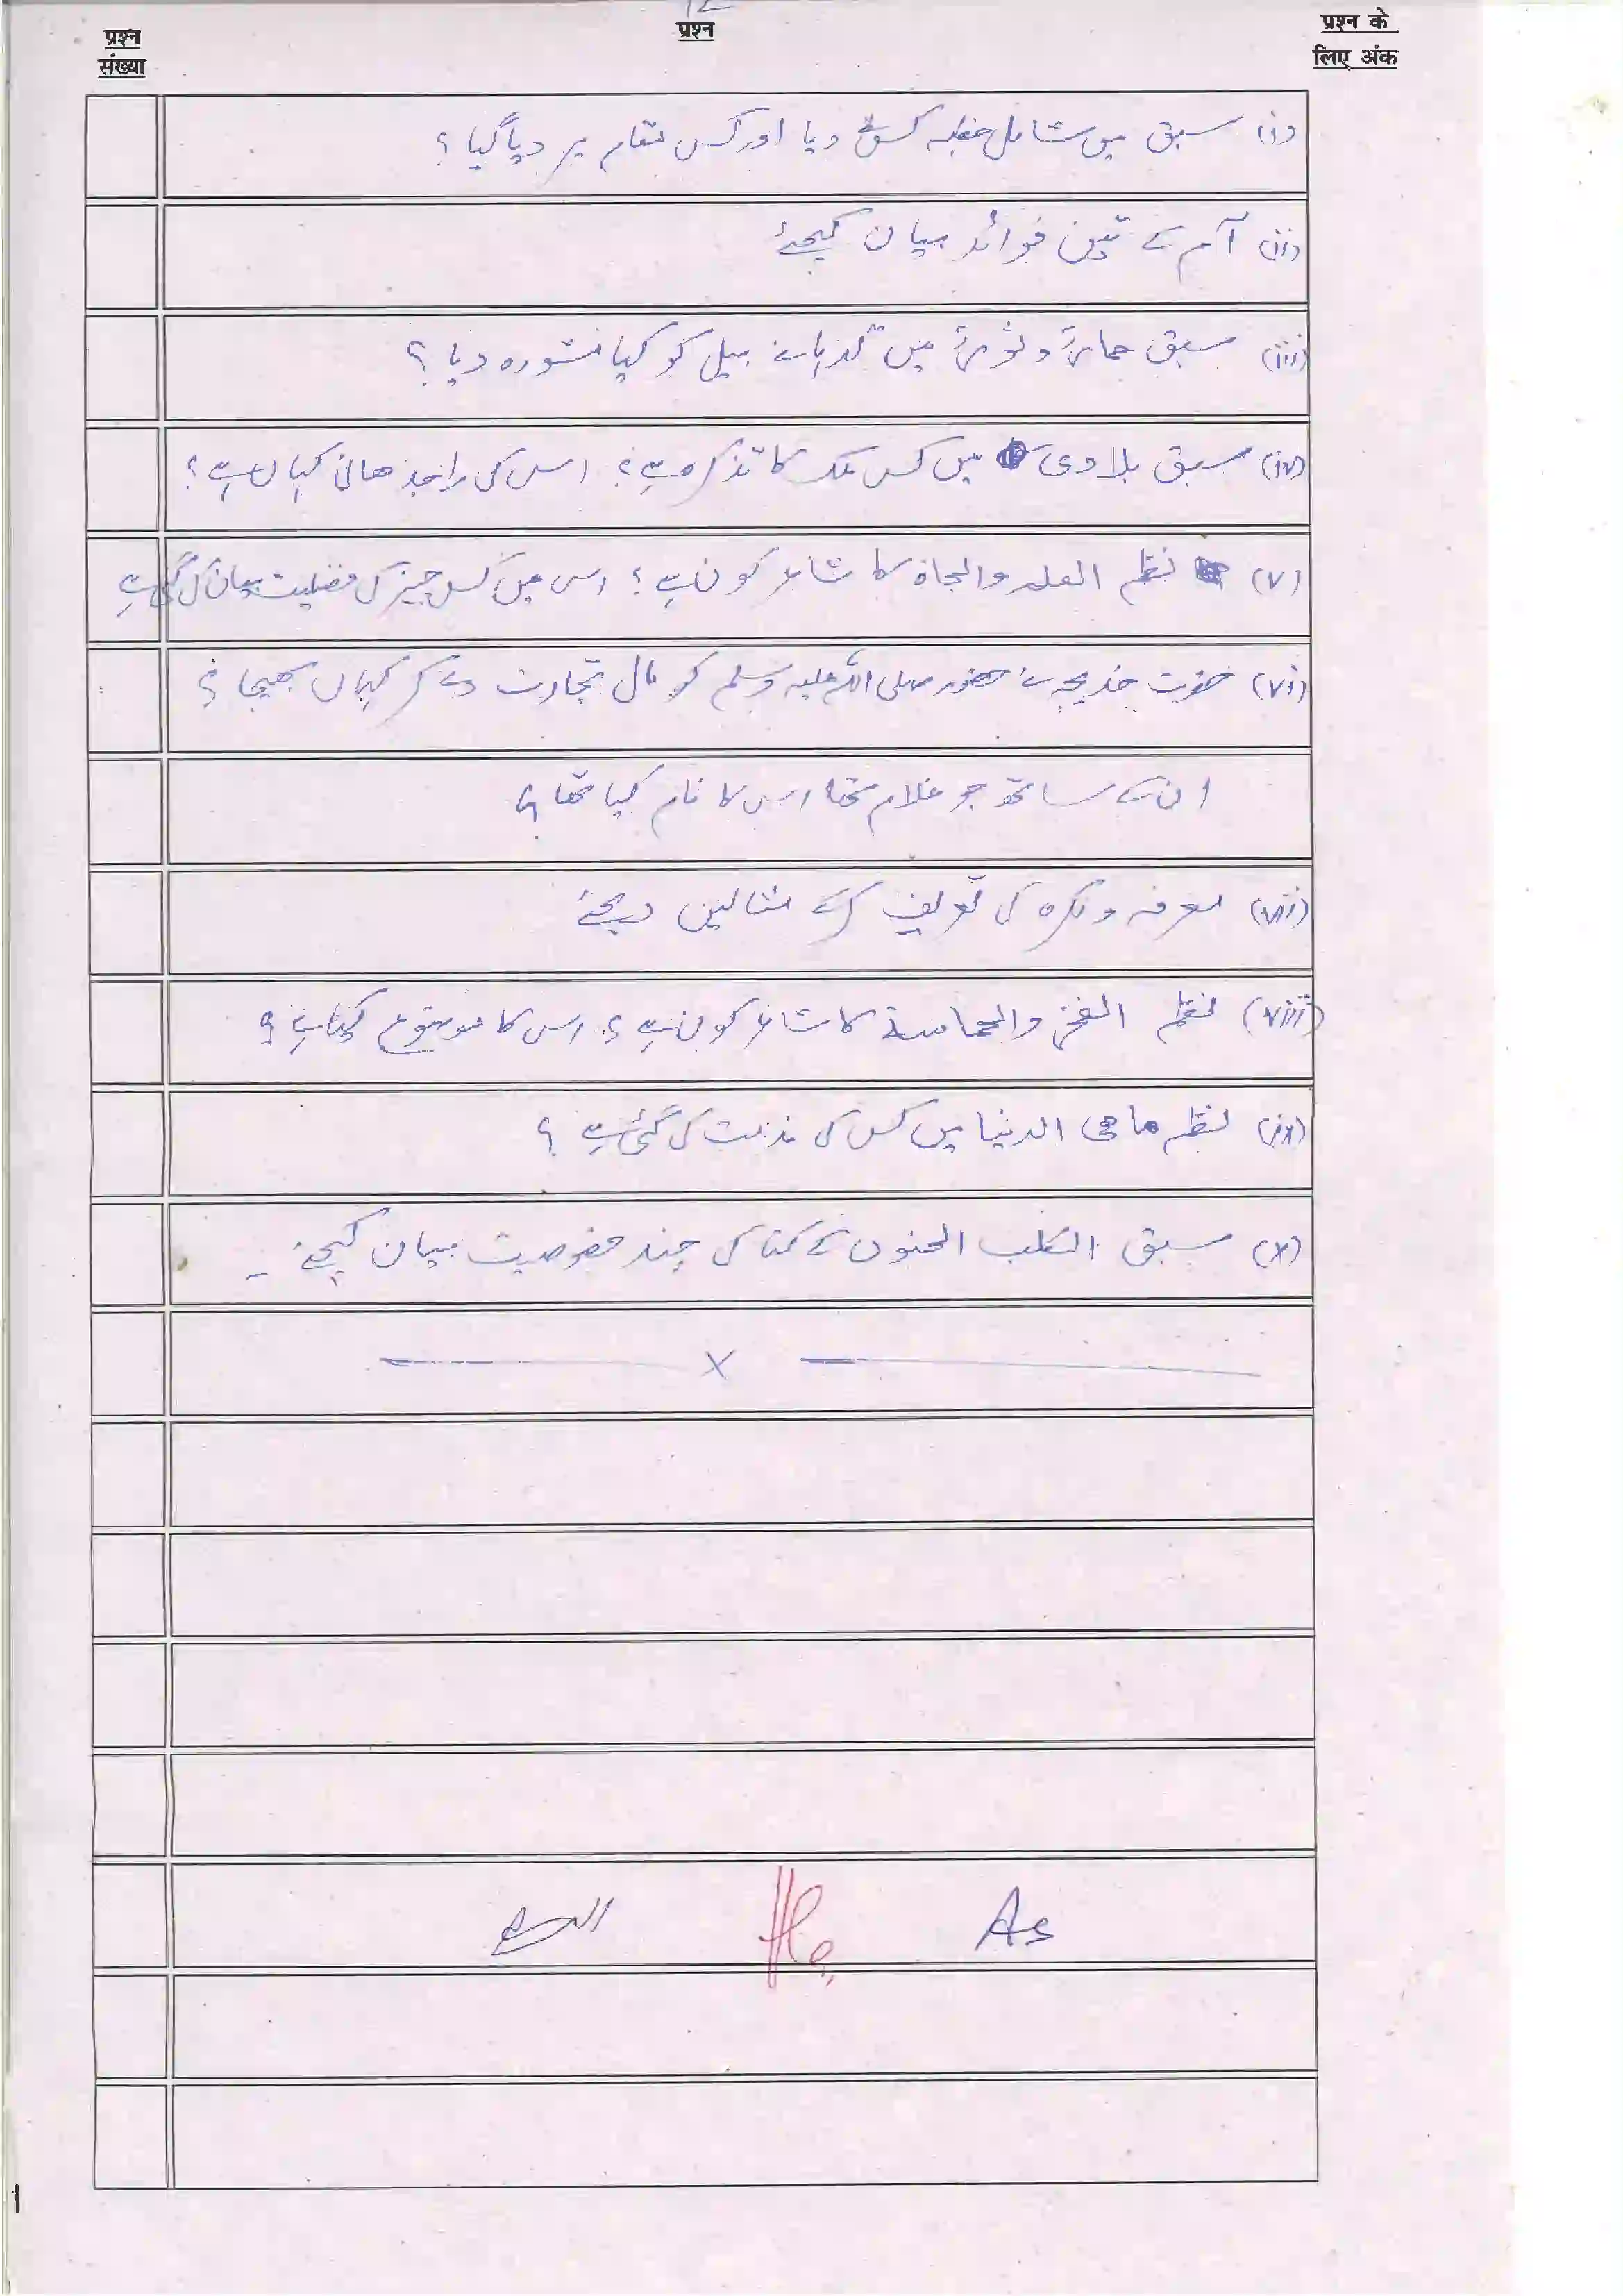 प्रश्न संख्या
प्रश्न
प्रश्न के लिए अंक
(i) سبق میں شامل خطبہ کس نے دیا اور کس مقام پر دیا گیا ؟
(ii) آم کے تین فوائد بیان کیجئے
(iii) سبق حمار و ثور میں گدہا نے بیل کو کیا مشورہ دیا ؟
(iv) سبق بلادی میں کس ملک کا تذکرہ ہے ؟ اس کی راجدھانی کہاں ہے ؟
(v) نظم العلم والجاہ کا شاعر کون ہے ؟ اس میں کس چیز کی فضلیت بیان کی گئی ہے
(vi) حضرت خدیجہ نے حضور صلی اللہ علیہ وسلم کو مال تجارت دے کر کہاں بھیجا ؟
ان کے ساتھ جو غلام تھا اس کا نام کیا تھا ؟
(vii) معرفہ و نکرہ کی تعریف کرکے مثالیں دیجئے
(viii) نظم الفخر والحماسة کا شاعر کون ہے ؟ اس کا موضوع کیا ہے ؟
(ix) نظم ماھی الدنیا میں کس کی مذمت کی گئی ہے ؟
(x) سبق الکلب الحنون کے کتا کی چند خصوصیت بیان کیجئے ۔
X
As